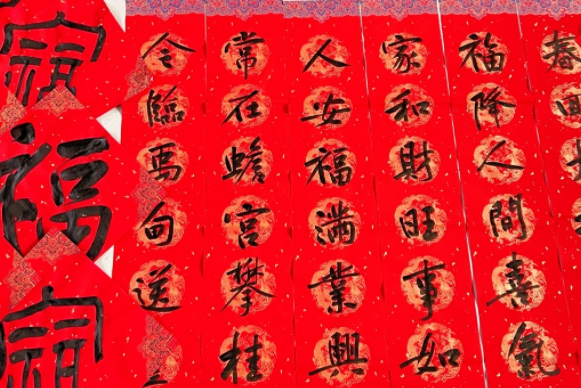 春
福降人間喜氣
家和財旺事如
人安福滿業興
常在蟾宮攀桂
令臨馬甸送
福